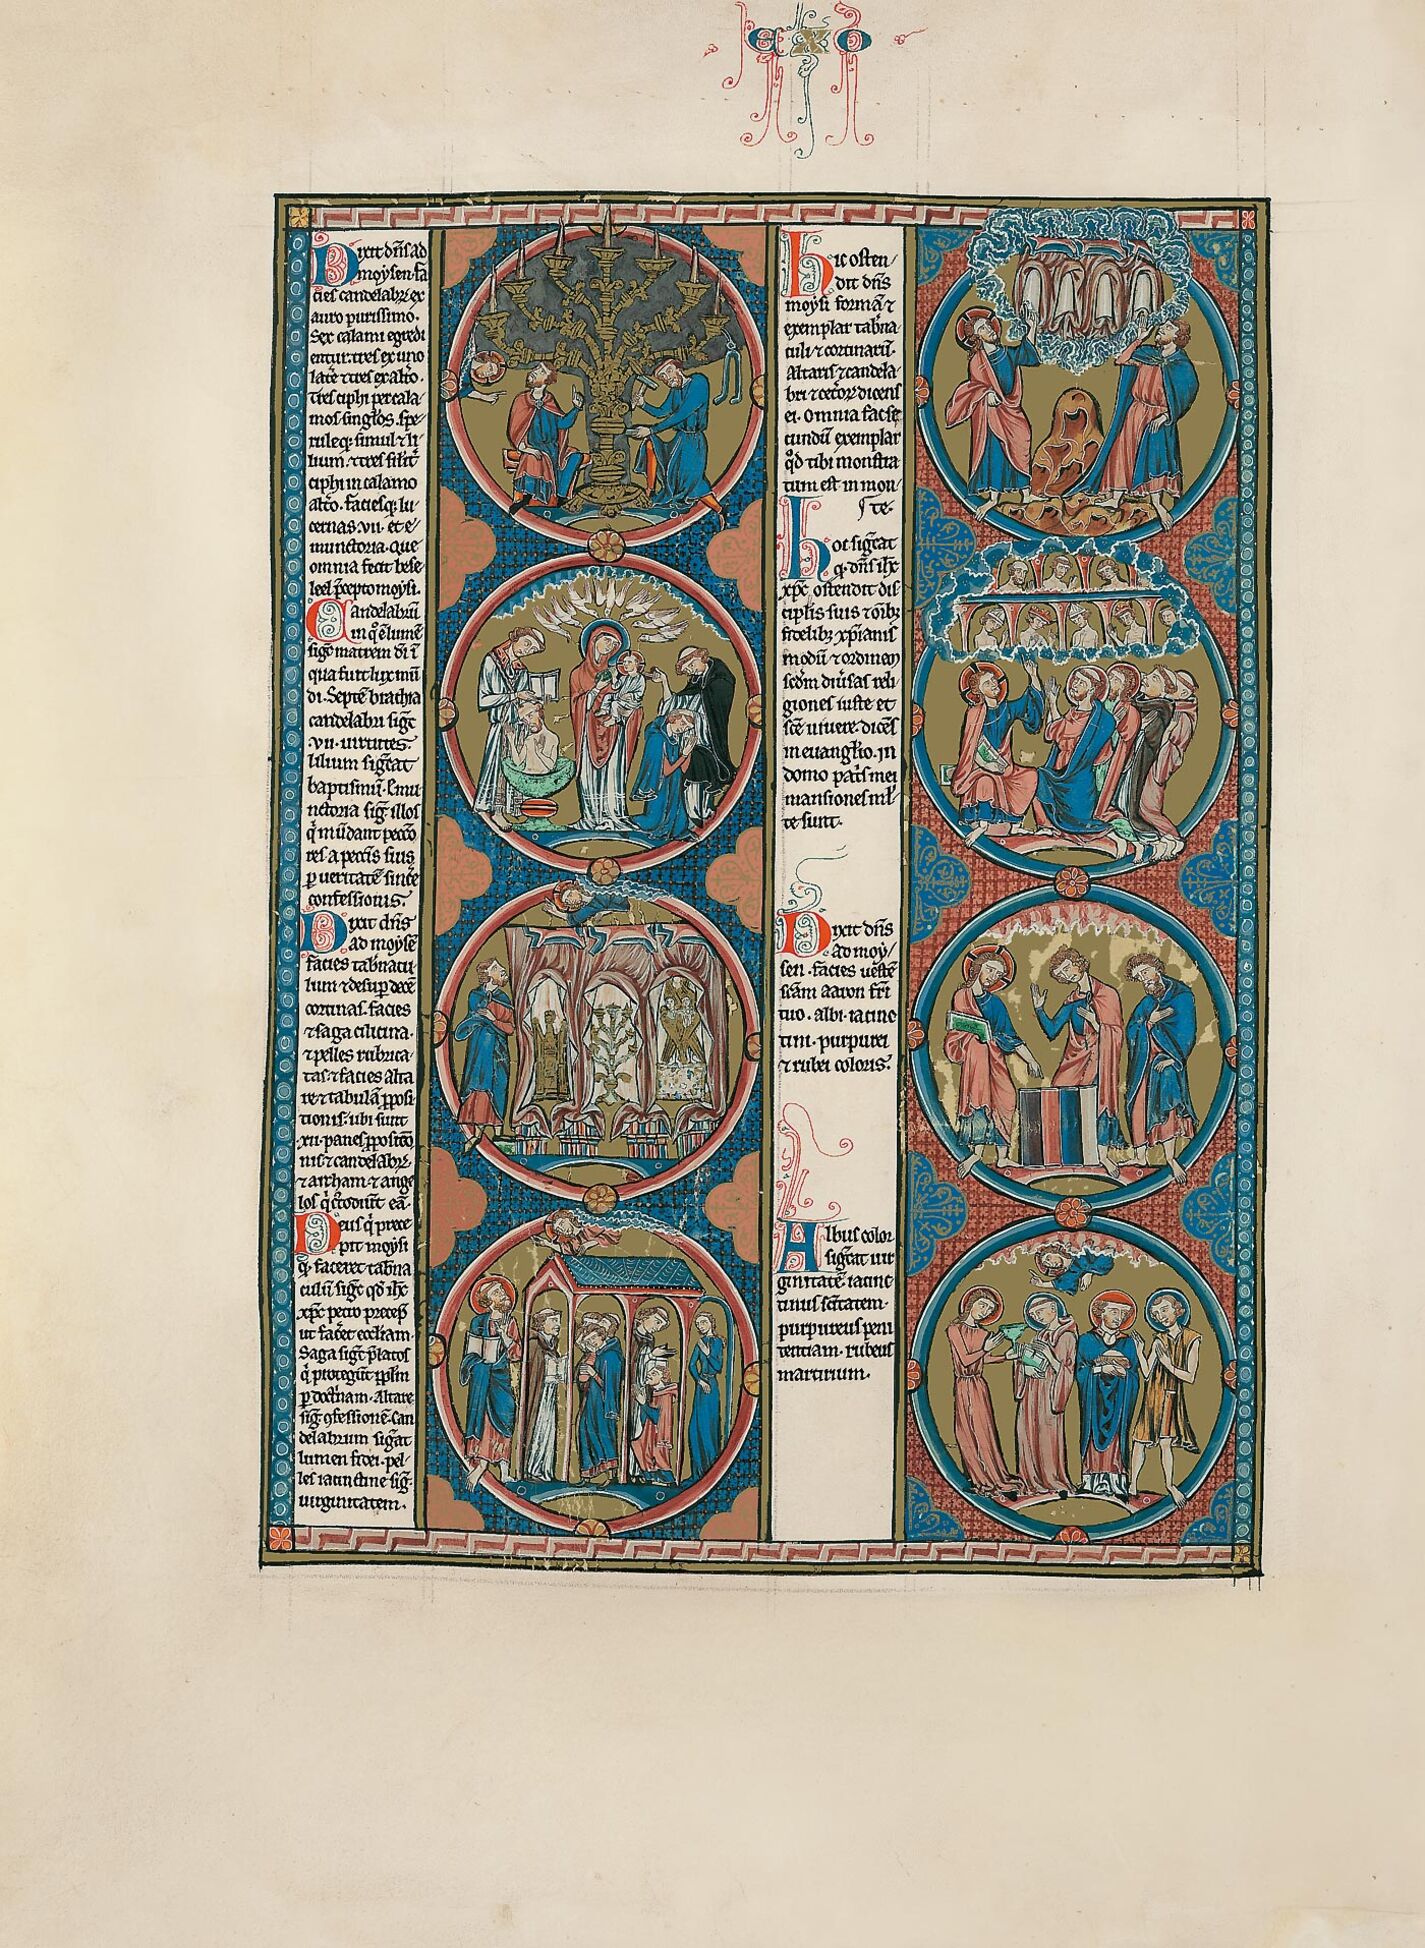 EXO
Dixit dñs ad
moysen fa
cies candelabrꝝ ex
auro purissimo.
Sex calami egredi
entur. tres ex uno
latẽ ⁊ tres ex alto.
Tres ciphi per cala
mos singłos. spe
ruleqꝫ simul ⁊ li
lium. ⁊ tres silit̃
ciphi in calamo
alto. faciesqꝫ lu
cernas. vii. et e
munctoria. que
omnia fecit bese
leel p̃cepto moysi.
Candelabrũ
in q̊ ẽ lumẽ
sig̃ matrem dĩ ĩ
qua fuit lux mũ
di. Septẽ brachia
candelabri sig̃t
.vii. uirtutes.
lilium sig̃at
baptismũ. Emu
nctoria sig̃. illos
q̃ mũdant pecc̃o
res a pecc̃is suis
ꝑ ueritatẽ sinc̃e
confessionis.
Dixit dñs
ad moysẽ
facies tab̃nacu
lum ⁊ desup̃ decẽ
cortinas. facies
⁊ saga cilicina.
⁊ pelles rubrica
tas. ⁊ facies alta
re ⁊ tabulã p̃posi
tionis. ubi sunt
.xii. panes p̃positõ
nis ⁊ candelabrꝝ.
⁊ archam ⁊ ange
los q̃ c̃todiũt eã.
Deus q̃ prece
pit moysi
q̃ faceret tab̃na
culũ sig̃t qd̃ ihc
xp̃c petro precep̃
ut fac̃et eccliam.
Saga sig̃t p̃latos
q̃ protegũt ppłm
ꝑ doct̃nam. Altare
sig̃. ꝯfessionẽ. Can
delabrum sig̃at
lumen fidei. pel
les iacinctine sig̃.
uirginitatem.
Hic osten
dit dñs
moysi formã ⁊
exemplar tab̃na
culi ⁊ cortinarũ.
Altaris ⁊ candela
bri ⁊ cet̃oꝝ dicens
ei. omnia fac se
cundũ exemplar
qd̃ tibi monstra
tum est in mon
te.
Hoc sig̃cat
q̃. dñs ihc
xp̃c ostendit dis
cip̃lis suis ⁊ oĩbꝫ
fidelibꝫ xp̃ianis
modũ ⁊ ordinem
scd̃m diu̾sas reli
giones iuste et
sc̃e uiuere. dicẽs
in euanglio. In
domo pat̃s mei
mansiones mł
te sunt.
Dixit dñs
ad moy
sen. facies uestẽ
sc̃am aaron fr̃i
tuo. albi. iacinc
tini. purpurei
⁊ rubei coloris.
Albus color
sig̃cat uir
ginitatẽ. iacinc
tinus sc̃itatem.
purpureus peni
tentiam. rubeus
martirium.